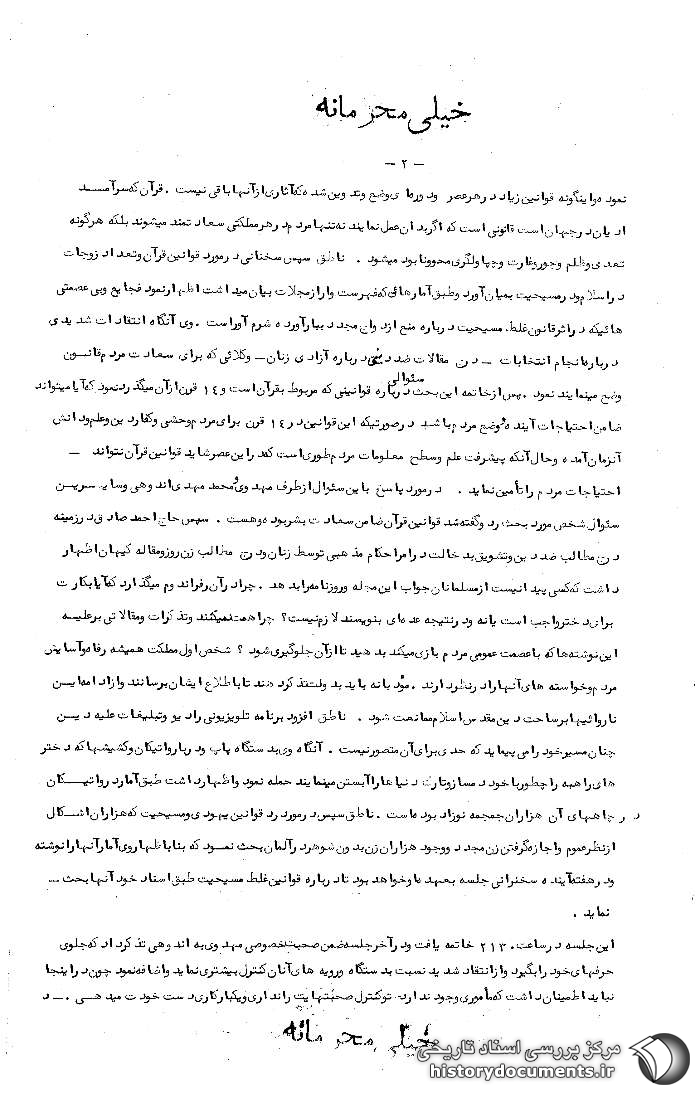 خیلی محرمانه
- ۲ -
نموده و اینگونه قوانین زیاد در هر عصر و دوره‌ای وضع و تدوین شده که آثاری از آنها باقی نیست . قرآن که سرآمد
ادیان در جهان است قانونی است که اگر بدان عمل نمایند نه تنها مردم در هر مملکتی سعادتمند میشوند بلکه هرگونه
تعدی و ظلم و جور و غارت و چپاولگری محو و نابود میشود . ناطق سپس سخنانی در مورد قوانین قرآن و تعداد زوجات
در اسلام و در مسیحیت بمیان آورد و طبق آمارهائی که فهرست وار از مجلات بیان میداشت اظهار نمود فجایع و بی عصمتی
هائیکه در اثر قانون غلط مسیحیت درباره منع ازدواج مجدد ببار آورده شرم آور است . وی آنگاه انتقادات شدیدی
درباره انجام انتخابات – درج مقالات ضد دینی درباره آزادی زنان – وکلائی که برای سعادت مردم قانون
وضع مینمایند نمود . پس از خاتمه این بحث سئوالی درباره قوانینی که مربوط بقرآن است و ۱۴ قرن از آن میگذرد نمود که آیا میتواند
ضامن احتیاجات آینده و وضع مردم باشد در صورتیکه این قوانین در ۱۴ قرن برای مردم وحشی و کفار دین و علم و دانش
آنزمان آمده و حال آنکه پیشرفت علم و سطح معلومات مردم طوری است که در این عصر شاید قوانین قرآن نتواند –
احتیاجات مردم را تأمین نماید . در مورد پاسخ باین سئوال از طرف مهدوی و محمد مهدی اندوهی و سایرین
سئوال شخص مورد بحث رد و گفته شد قوانین قرآن ضامن سعادت بشر بوده و هست . سپس حاج احمد صادق در زمینه
درج مطالب ضد دین و تشویق بدخالت در امر احکام مذهبی توسط زنان و درج مطالب زن روز و مقاله کیهان اظهار
داشت که کسی پیدا نیست از مسلمانان جواب این مجله و روزنامه را بدهد . چرا در آن رفراندوم میگذارد که آیا بکارت
برای دختر واجب است یا نه و در نتیجه عده‌ای بنویسند لازم نیست ؟ چرا همت نمیکنند و تذکرات و مقالاتی بر علیه
این نوشته‌ها که با عصمت عمومی مردم بازی میکند بدهید تا از آن جلوگیری شود ؟ شخص اول مملکت همیشه رفاه و آسایش
مردم و خواسته های آنها را در نظر دارند . مؤدبانه باید بدولت تذکر دهند تا باطلاع ایشان برسانند و از ادامه این
ناروائیها بر ساحت دین مقدس اسلام ممانعت شود . ناطق افزود برنامه تلویزیونی رادیو و تبلیغات علیه دین
چنان مسیر خود را می پیماید که حدی برای آن متصور نیست . آنگاه وی بدستگاه پاپ و دربار واتیکان و کشیشها که دختر
های راهبه را چطور با خود دمساز و تارک دنیاها را آبستن مینمایند حمله نمود و اظهار داشت طبق آمار در واتیکان
در چاههای آن هزاران جمجمه نوزاد بوده است . ناطق سپس در مورد رد قوانین یهودی و مسیحیت که هزاران اشکال
از نظر عموم و اجازه گرفتن زن مجدد و وجود هزاران زن بدون شوهر در آلمان بحث نمود که بنا باظهار وی آمار آنها را نوشته
و در هفته آینده سخنرانی جلسه بعهده ما و خواهد بود تا درباره قوانین غلط مسیحیت طبق اسناد خود آنها بحث –
نماید .
این جلسه در ساعت ۲۱۳۰ خاتمه یافت و در آخر جلسه ضمن صحبت خصوصی مهدوی به اندوهی تذکر داد که جلوی
حرفهای خود را بگیرد و از انتقاد شدید نسبت بدستگاه و رویه های آنان کنترل بیشتری نماید و اضافه نمود چون در اینجا
نباید اطمینان داشت که مأموری وجود ندارد . تو کنترل صحبتهایت را نداری و یکبار کاری دست خودت میدهی . – د
خیلی محرمانه
مرکز بررسی اسناد تاریخی
historydocuments.ir